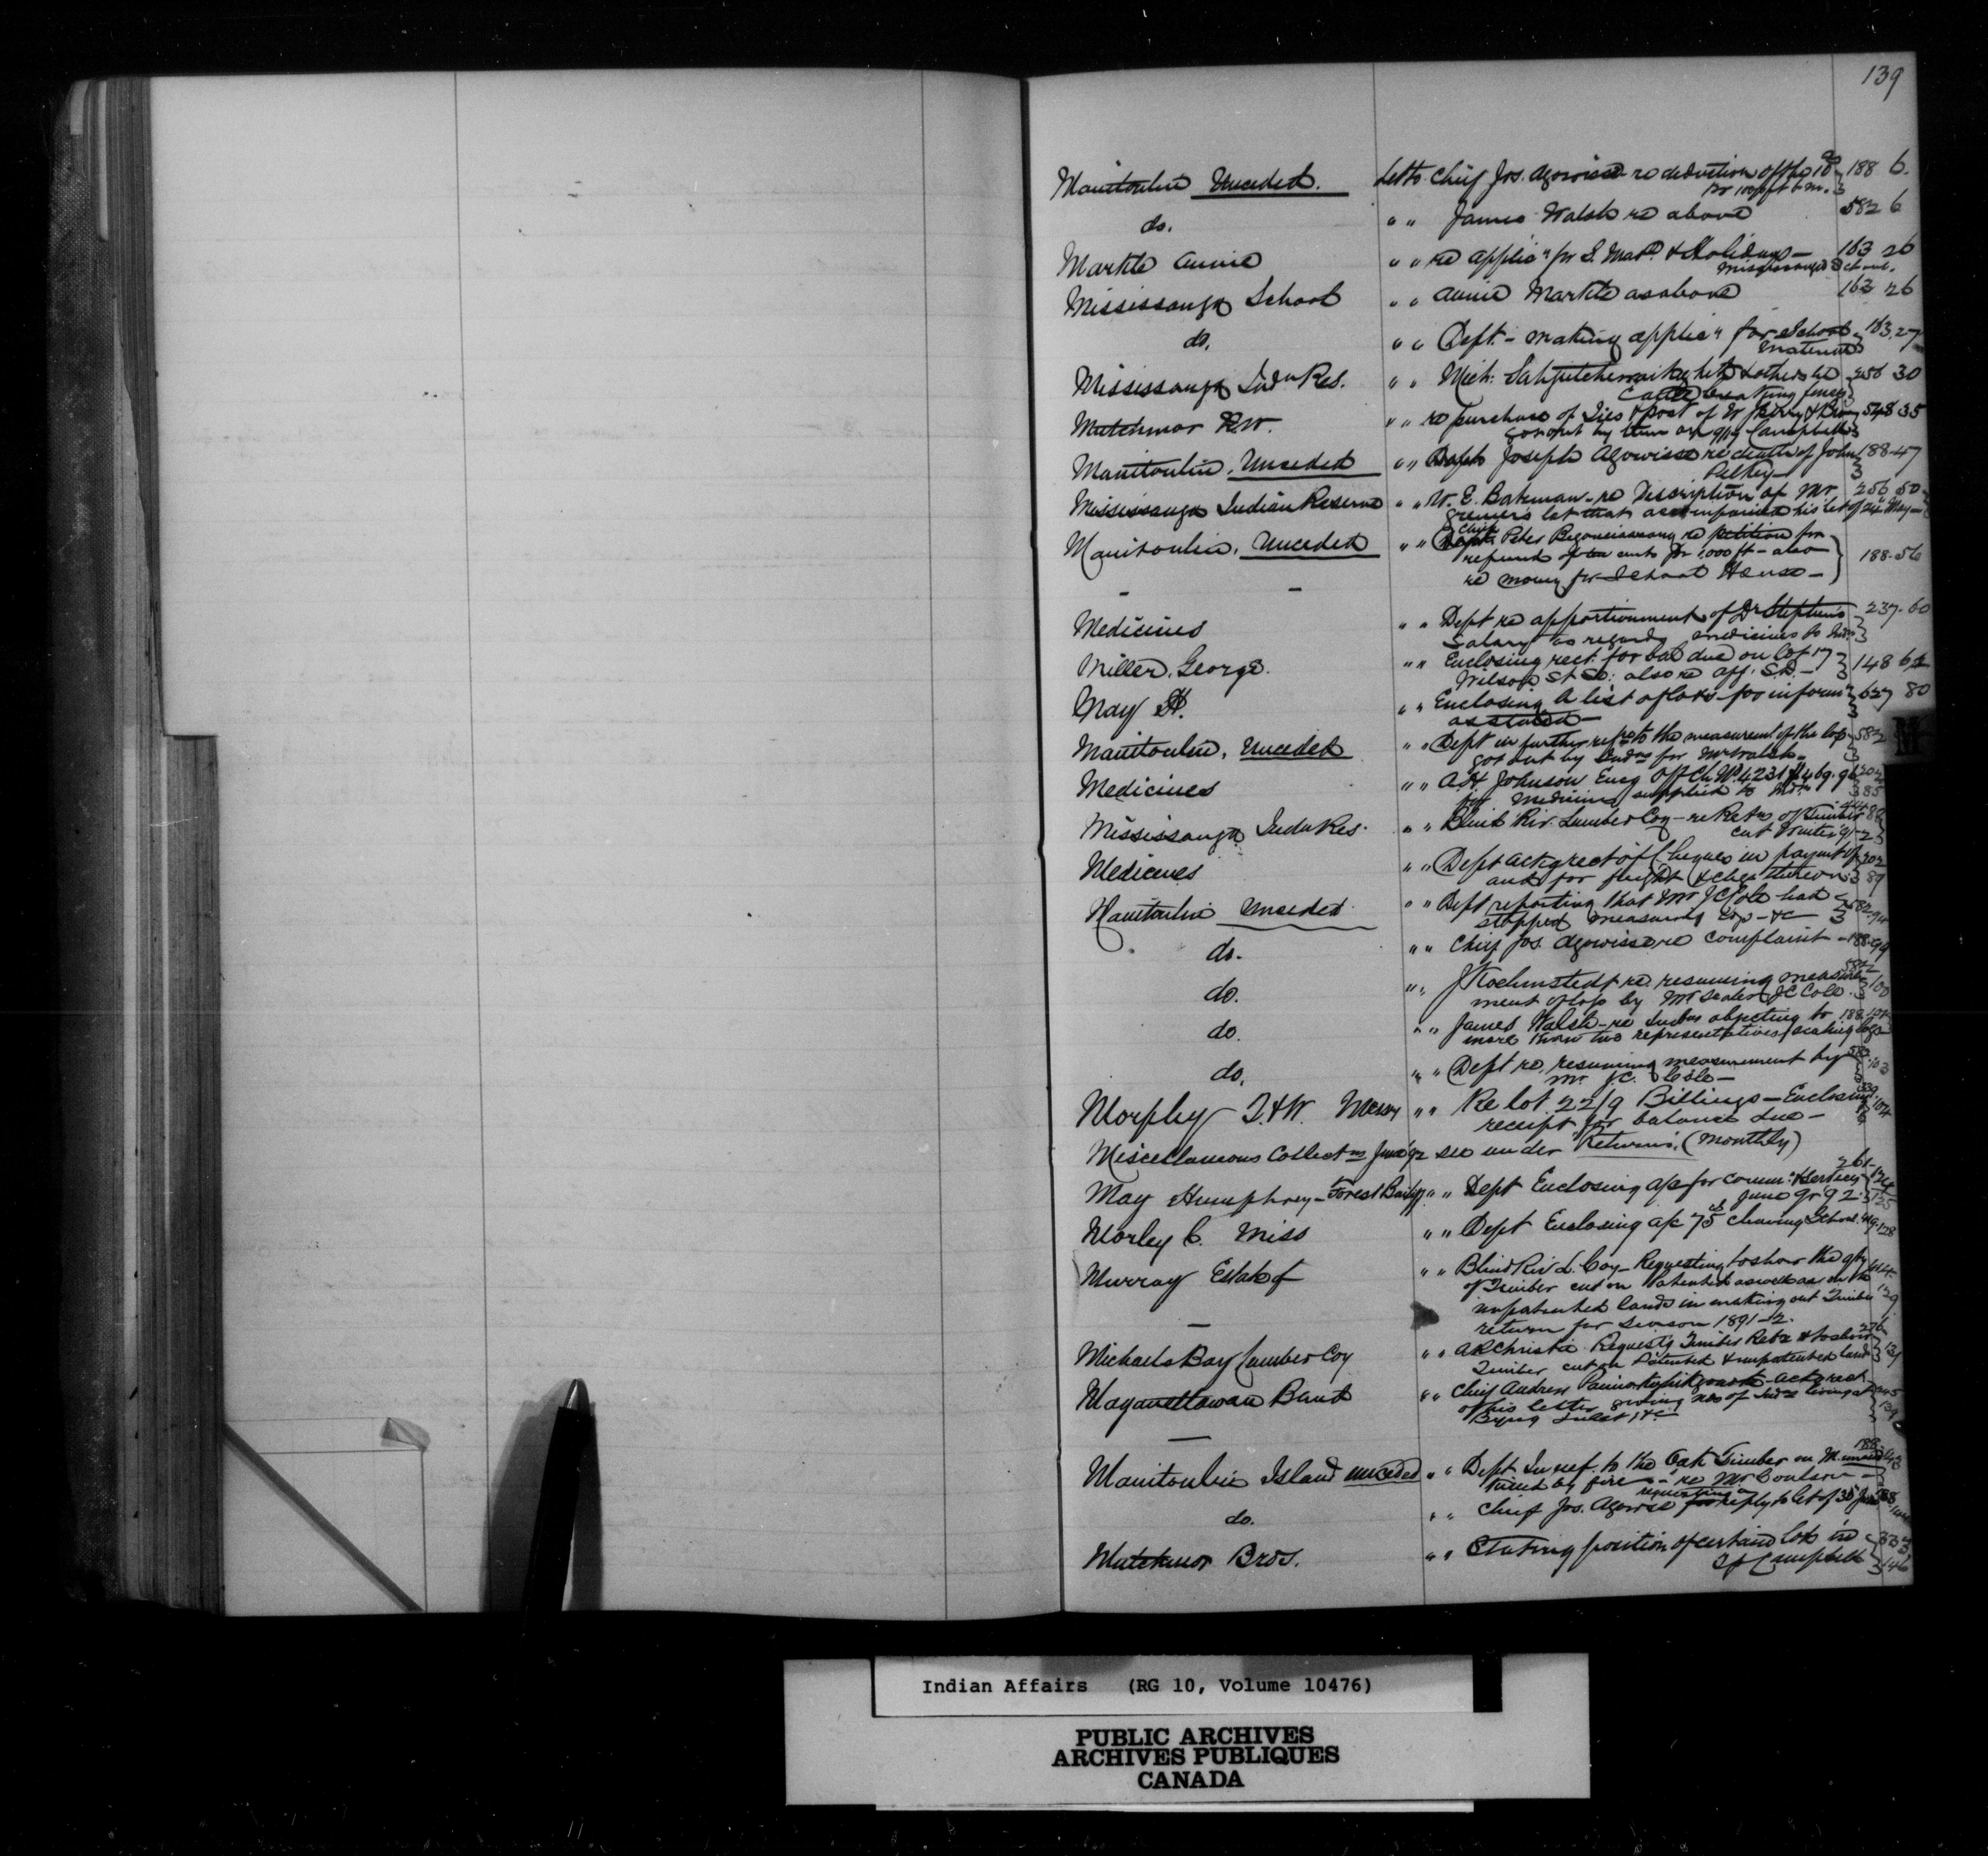 139
Manitoulin Unceded. Let to Chief Jos. Agowissa re deduction of the 10 188 6.
do. " " James Walsh re above 582 6
Markle Annie " " re applicn for S. Matl & Holidays — 163 26
Mississauga School.
Mississauga School " " Annie Markle as above 163 26
do. " " Dept. - making applicn for School 163.27
Material
Mississauga Indn Res. " " Mich: & others re 256 30
Cattle breaking fences
Mutchmor R.W. " " re purchase of Ties & post of W & Bro 548 35
got out by them on Campbell
Manitoulin, Unceded " " Joseph Agowissa re death of John 188-47
Pelkey
Mississauga Indian Reserve " " W. E. Bateman - re Description of Mr 256 50
lot that accompanied his let of 24 May —
Manitoulin, Unceded " " Chief Peter re petition for
refund of ten cents pr 1,000 ft - also 188-56
re money for School House —
Medicines " " Dept re apportionment of Dr Stephens 237-60
Salary as regards medicines to Indns
Miller, George. " " Enclosing rect. for bal due on lot 17 148 62
Wilson St So: also re aff. S.D. —
May H. " " Enclosing a list of lots for informn 627 80
as stated —
Manitoulin, Unceded " " Dept in further refce to the measurement of the logs 582
got out by Indns for Mr Walsh —
Medicines " " A.H. Johnson Encg Off Ch No 4231 $469.96 202
for medicines supplied to Indns 85
Mississauga Indn Res. " " Blind Riv. Lumber Coy - re Retns of Timber
cut
Medicines " " Dept ackg rect of Cheques in payment of 202
for freight & chgs thereon 89
Manitoulin Unceded " " Dept reporting that Mr J C Cole had 582
stopped measuring logs - &c 94
do. " " Chief Jos. Agowissa re complaint - 188-99
do. " " J Kochmstedt re resuming measure 582
ment of logs by Mr Scaler J C Cole. 100
do. " " James Walsh - re Indns objecting to 188
more than two representatives scaling logs
do. " " Dept re resuming measurement by 103
Mr J.C. Cole —
Morphy T. & W. Messrs " " Re lot 22/9 Billings — Enclosing
receipt for balance due — 104
Miscellaneous Collectns June '92 see under "Returns". (Monthly)
May Humphrey - Forest Bailiff " " Dept Enclosing a/c for comm: & services 261
June qr 92. 125
Morley C. Miss " " Dept Enclosing a/c 75 cleaning School. 128
Murray Estate of " " Blind Riv L. Coy - Requesting to show the qty
of Timber cut on Patented as well as on the
unpatented lands in making out Timber 129
return for season 1891-2.
Michaels Bay Lumber Coy " " A R Christie Requestg Timber Retn & to show
Timber cut on Patented & unpatented lands
Maganettawan Band " " Chief Andrew ackg rect
of his letter giving nos of Indns living at
Byng Inlet, &c 139
Manitoulin Island Unceded " " Dept In ref. to the Oak Timber on M. unceded 188
killed by fire - re Mr Coulson —
do. " " Chief Jos. Agowissa requesting reply to let of 30
Mutchmor Bros. " " Stating position of certain lots in 333
Tp Campbell 146
M
Indian Affairs (RG 10, Volume 10476)
PUBLIC ARCHIVES
ARCHIVES PUBLIQUES
CANADA